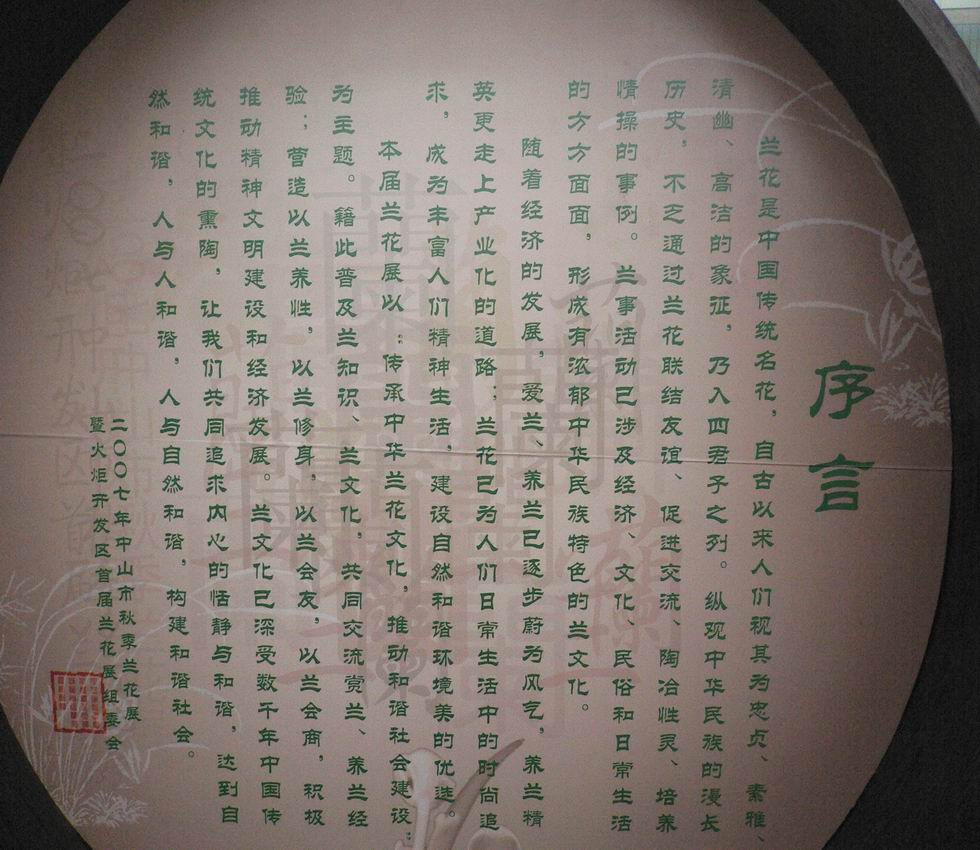 序言
兰花是中国传统名花，自古以来人们视其为忠贞、素雅、
清幽、高洁的象征，乃入四君子之列。纵观中华民族的漫长
历史，不乏通过兰花联结友谊、促进交流、陶冶性灵、培养
情操的事例。兰事活动已涉及经济、文化、民俗和日常生活
的方方面面，形成有浓郁中华民族特色的兰文化。
随着经济的发展，爱兰、养兰已逐步蔚为风气，养兰精
英更走上产业化的道路；兰花已为人们日常生活中的时尚追
求，成为丰富人们精神生活，建设自然和谐环境美的优选。
本届兰花展以：传承中华兰花文化，推动和谐社会建设：
为主题。籍此普及兰知识、兰文化，共同交流赏兰、养兰经
验；营造以兰养性，以兰修身，以兰会友，以兰会商，积极
推动精神文明建设和经济发展。兰文化已深受数千年中国传
统文化的熏陶，让我们共同追求内心的恬静与和谐，达到自
然和谐，人与人和谐，人与自然和谐，构建和谐社会。
二〇〇七年中山市秋季兰花展
暨火炬开发区首届兰花展组委会